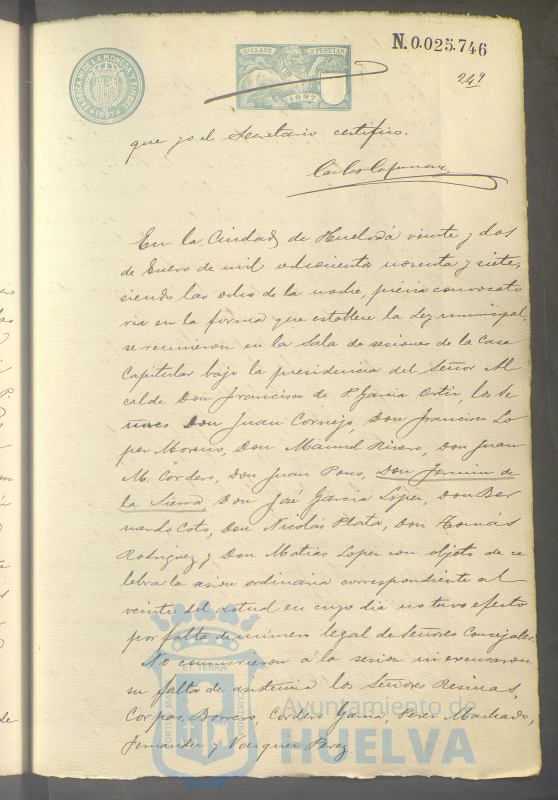 FABRICA Nal DE LA MONEDA Y TIMBRE
1897
11ª CLASE 2 PESETAS
1897
N.0.025.746
249
que yo el Secretario certifico.
En la Ciudad de Huelva á veinte y dos
de Enero de mil ochocientos noventa y siete,
siendo las ocho de la noche, prévia convocato
ria en la forma que establece la Ley municipal,
se reunieron en la Sala de sesiones de la Casa
Capitular bajo la presidencia del Señor Al
calde Don Francisco de P. Garcia Ortiz, los Se
ñores Don Juan Cornejo, Don Francisco Lo
pez Moreno, Don Manuel Rivero, Don Juan
M. Cordero, Don Juan Pons, Don Fermin de
la Sierra Don José Garcia Lopez, Don Ber
nardo Coto, Don Nicolás Plata, Don Tomás
Rodriguez y Don Matias Lopez con objeto de ce
lebrar la sesion ordinaria correspondiente al
veinte del actual en cuyo dia no tuvo efecto
por falta de número legal de Señores Concejales.
No concurrieron á la sesion ni excusaron
su falta de asistencia los Señores Resinas,
Corpas, Borrero, Cordero Garcia, Perez Machado,
Fernandez y Vazquez Perez.
Ayuntamiento de
HUELVA